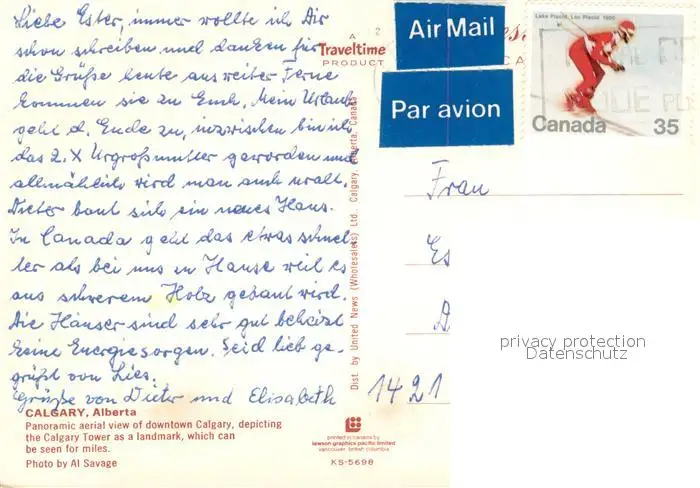 Liebe Ester, immer wollte ich Dir
schon schreiben und danken für
die Grüße heute aus weiter Ferne
kommen sie zu Euch. Mein Urlaub
geht d. Ende zu, inzwischen bin ich
das 2. X Urgroßmutter geworden und
allmählich wird man auch uralt.
Dieter baut sich ein neues Haus.
In Canada geht das etwas schnel-
ler als bei uns zu Hause weil es
aus schwerem Holz gebaut wird.
Die Häuser sind sehr gut beheizt
keine Energiesorgen. Seid lieb ge-
grüßt von Lies.
Grüße von Dieter und Elisabeth
CALGARY, Alberta
Panoramic aerial view of downtown Calgary, depicting
the Calgary Tower as a landmark, which can
be seen for miles.
Photo by Al Savage
A
Traveltime
PRODUCT
2
Dist. by United News (Wholesalers) Ltd. Calgary, Alberta, Canada
printed in canada by
lawson graphics pacific limited
vancouver, british columbia
KS-5698
Air Mail
Par avion
Lake Placid, Lac Placid 1980
Canada 35
Frau
Es
D
1421
privacy protection
Datenschutz